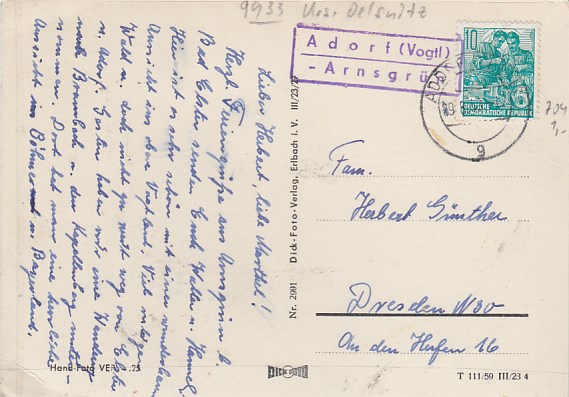 9933 Krs. Oelsnitz
Adorf (Vogtl)
-Arnsgrü
10
DEUTSCHE
DEMOKRATISCHE REPUBLIK
ADORF
g
704
1,-
Lieber Herbert, liebe Martel!
Herzl. Feriengrüße aus Arnsgrün b.
Bad Elster senden Euch Walter u. Hannel.
Hier ist es sehr schön mit einer wunderbaren
Aussicht ins obere Vogtland. Viel
Wald u. doch nicht zu weit weg von Elster
u. Adorf. Gestern haben wir eine Wanderung
nach Brambach u. den Kapellenberg unter-
nommen. Dort hat man eine herrliche
Aussicht ins Böhmerland u. Bayernland.
Nr. 2001 Dick-Foto-Verlag, Erlbach i. V. III/23/27
Fam.
Herbert Günther
Dresden N30
An den Hufen 16
Hand-Foto VEP -.25
DICK
T 111/59 III/23 4